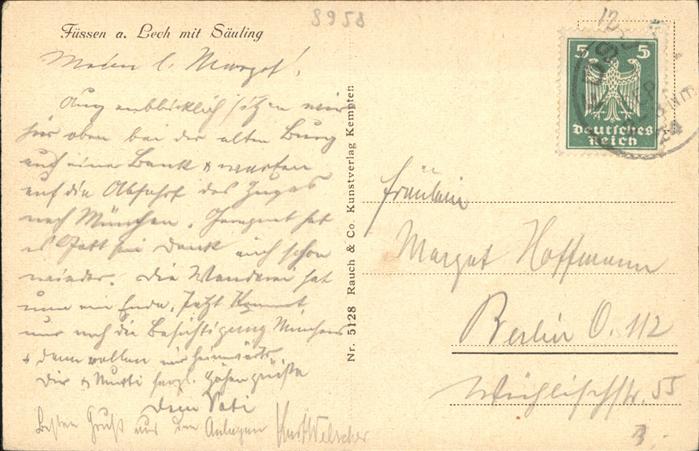 8958
Füssen a. Lech mit Säuling
Meine l. Margot!
Augenblicklich sitzen wir
hier oben bei der alten Burg
auf einer Bank & warten
auf die Abfahrt des Zuges
nach München. Geregnet hat
es Gott sei Dank auch schon
wieder. Die Wanderei hat
nun ein Ende, Jetzt kommt
nur noch die Besichtigung Münchens
& dann wollen wir heimwärts.
Dir & Mutti herzl. Höhengrüße
Dein Vati
Besten Gruß aus den Kurt Welscher
Nr. 5128 Rauch & Co. Kunstverlag Kempten
5 5
Deutsches
Reich
Fräulein
Margot Hoffmann
Berlin O. 112
Wühlischstr. 55